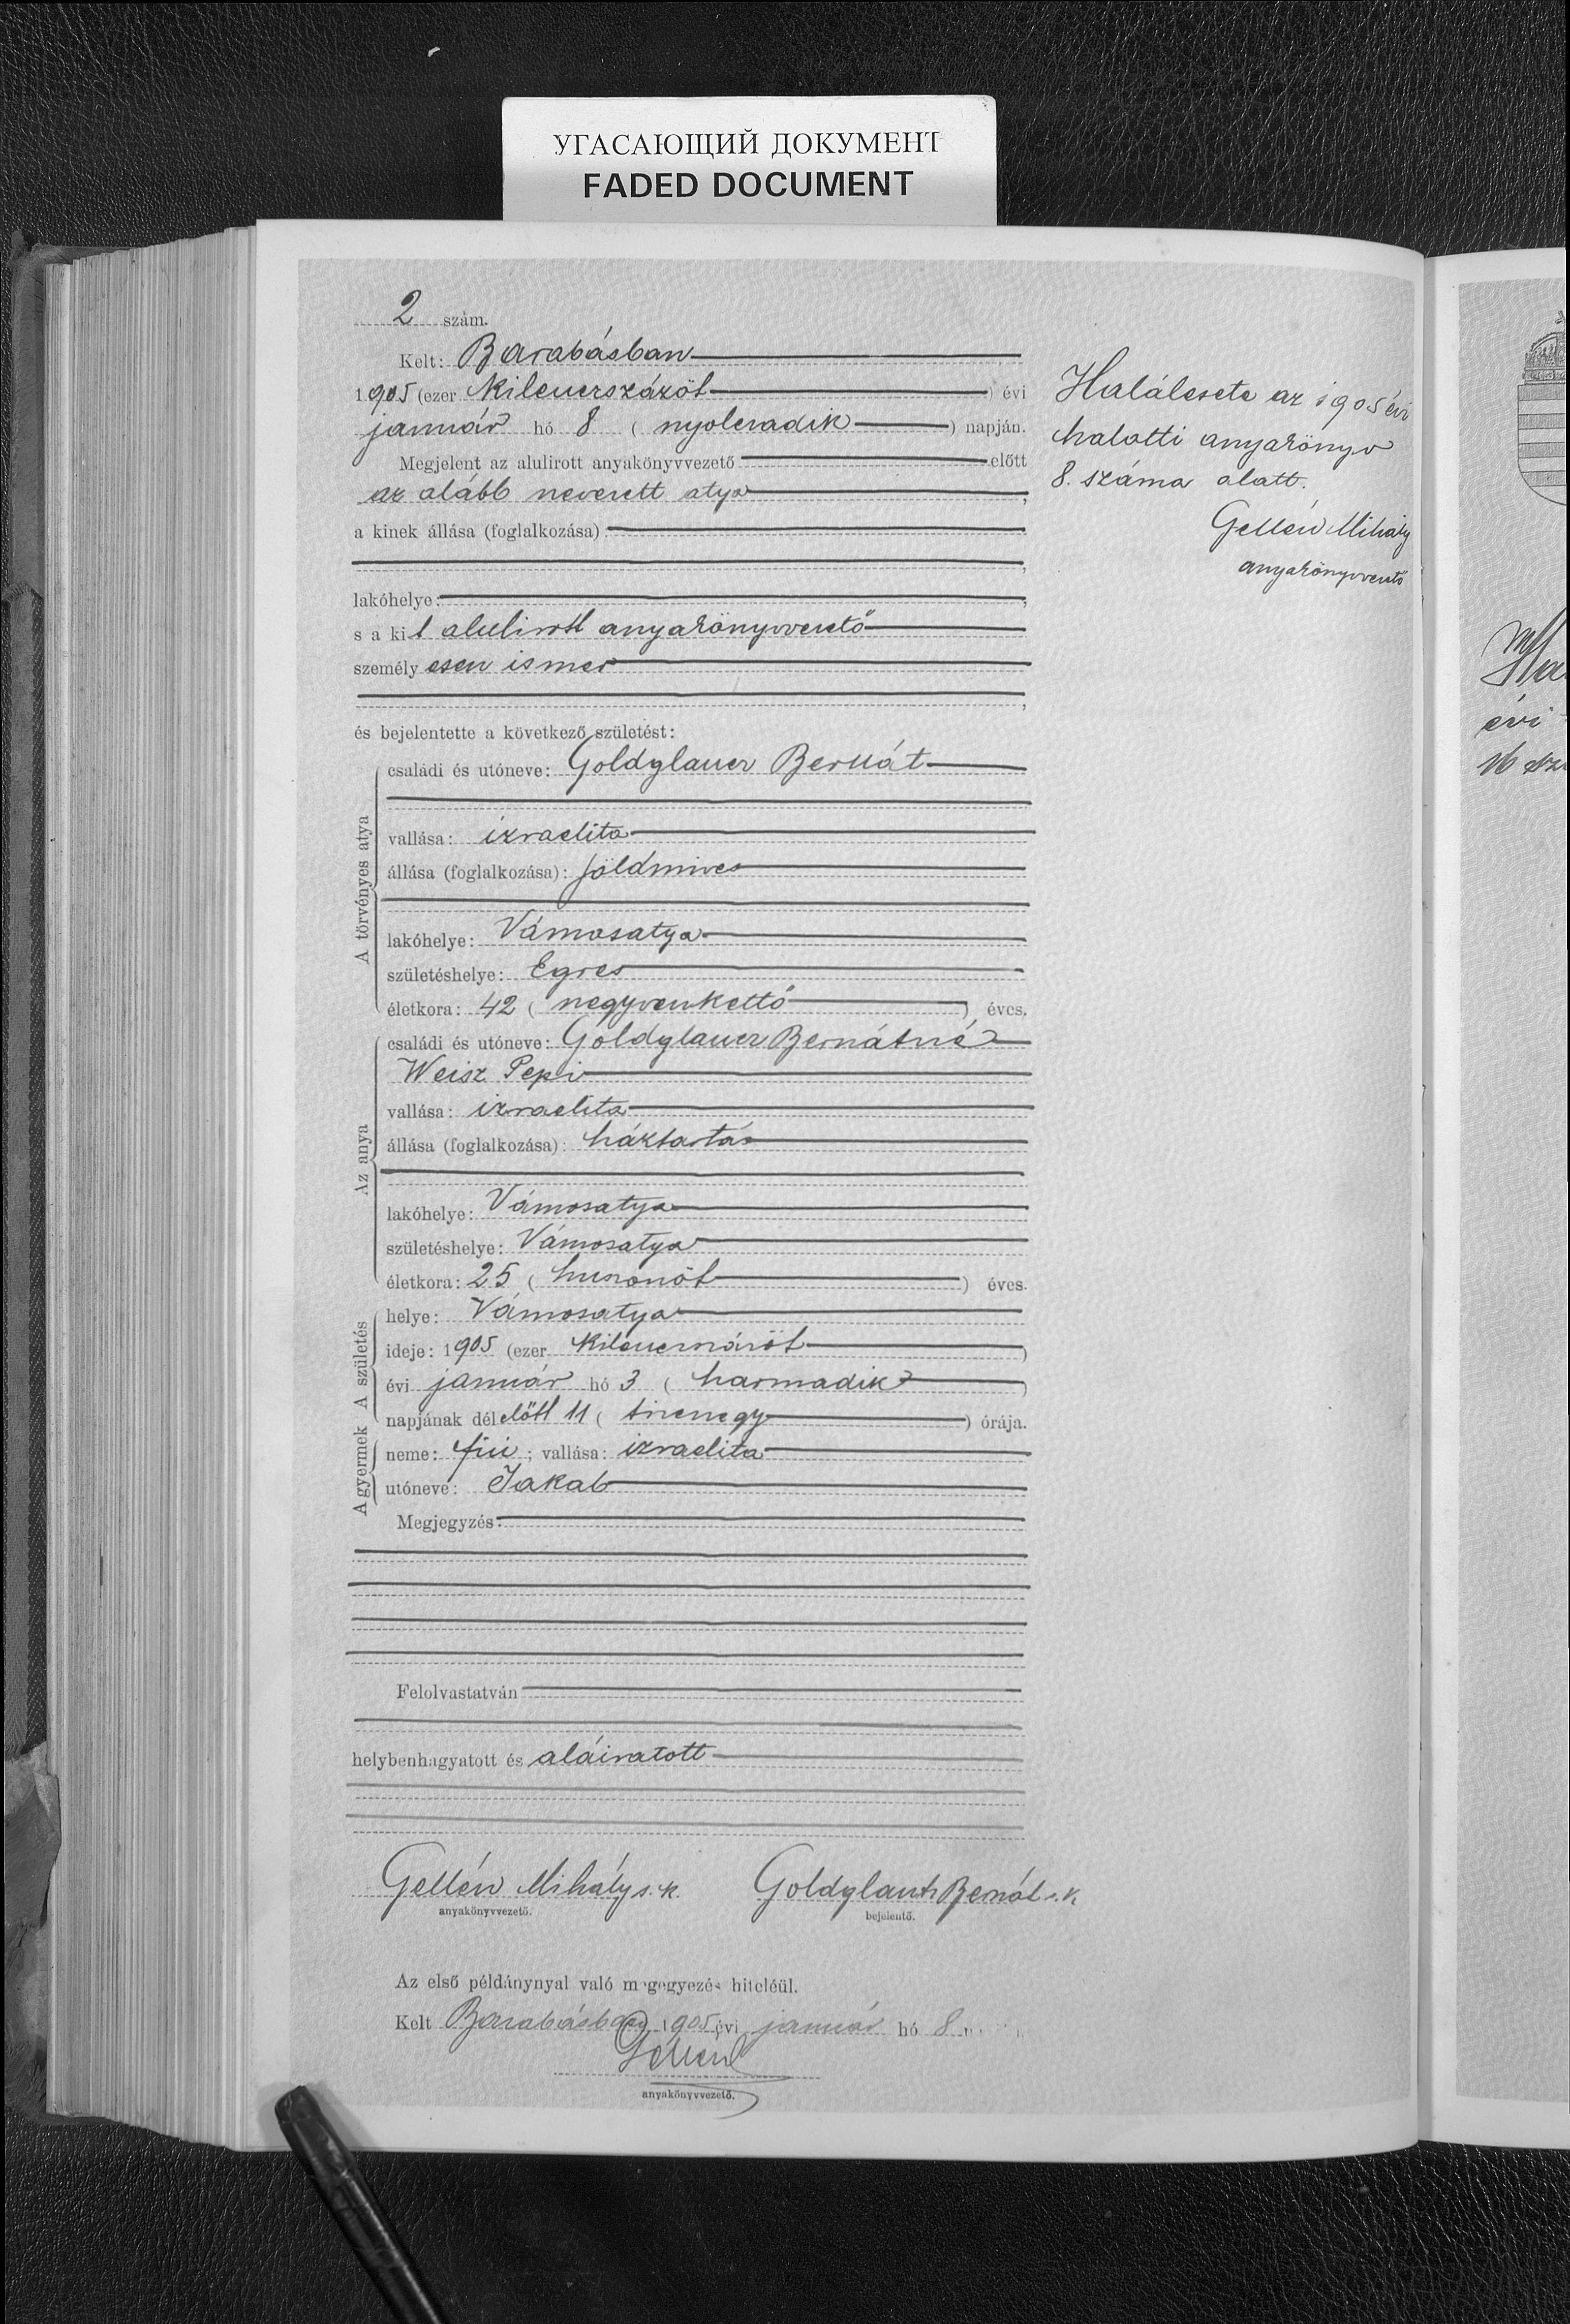 УГАСАЮЩИЙ ДОКУМЕНТ
FADED DOCUMENT
2 szám.
Kelt: Barabásban
1905 (ezer kilenczszázöt ) évi
január hó 8 ( nyolczadik ) napján.
Megjelent az alulirott anyakönyvvezető előtt
az alább nevezett atya,
a kinek állása (foglalkozása):
lakóhelye:
s a kit alulirott anyakönyvvezető
személyesen ismer
és bejelentette a következő születést:
A törvényes atya
családi és utóneve: Goldglauer Bernát
vallása: izraelita
állása (foglalkozása): földmives
lakóhelye: Vámosatya
születéshelye: Egres
életkora: 42 ( negyvenkettő ) éves.
Az anya
családi és utóneve: Goldglauer Bernátné
Weisz Pepi
vallása: izraelita
állása (foglalkozása): háztartás
lakóhelye: Vámosatya
születéshelye: Vámosatya
életkora: 25 ( huszonöt ) éves.
A születés
helye: Vámosatya
ideje: 1905 (ezer kilenczszázöt )
évi január hó 3 ( harmadik )
napjának délelőtt 11 ( tizenegy ) órája.
A gyermek
neme: fiú; vallása: izraelita
utóneve: Jakab
Megjegyzés:
Felolvastatván
helybenhagyatott és aláiratott
Gellén Mihály s. k. Bernát s. k.
anyakönyvvezető. bejelentő.
Az első példánynyal való megegyezés hiteléül.
Kelt Barabásban 1905 évi január hó 8
Gellén
anyakönyvvezető.
Halálesete az 1905 évi
halotti anyakönyv
8. száma alatt.
Gellén Mihály
anyakönyvvezető
évi
16